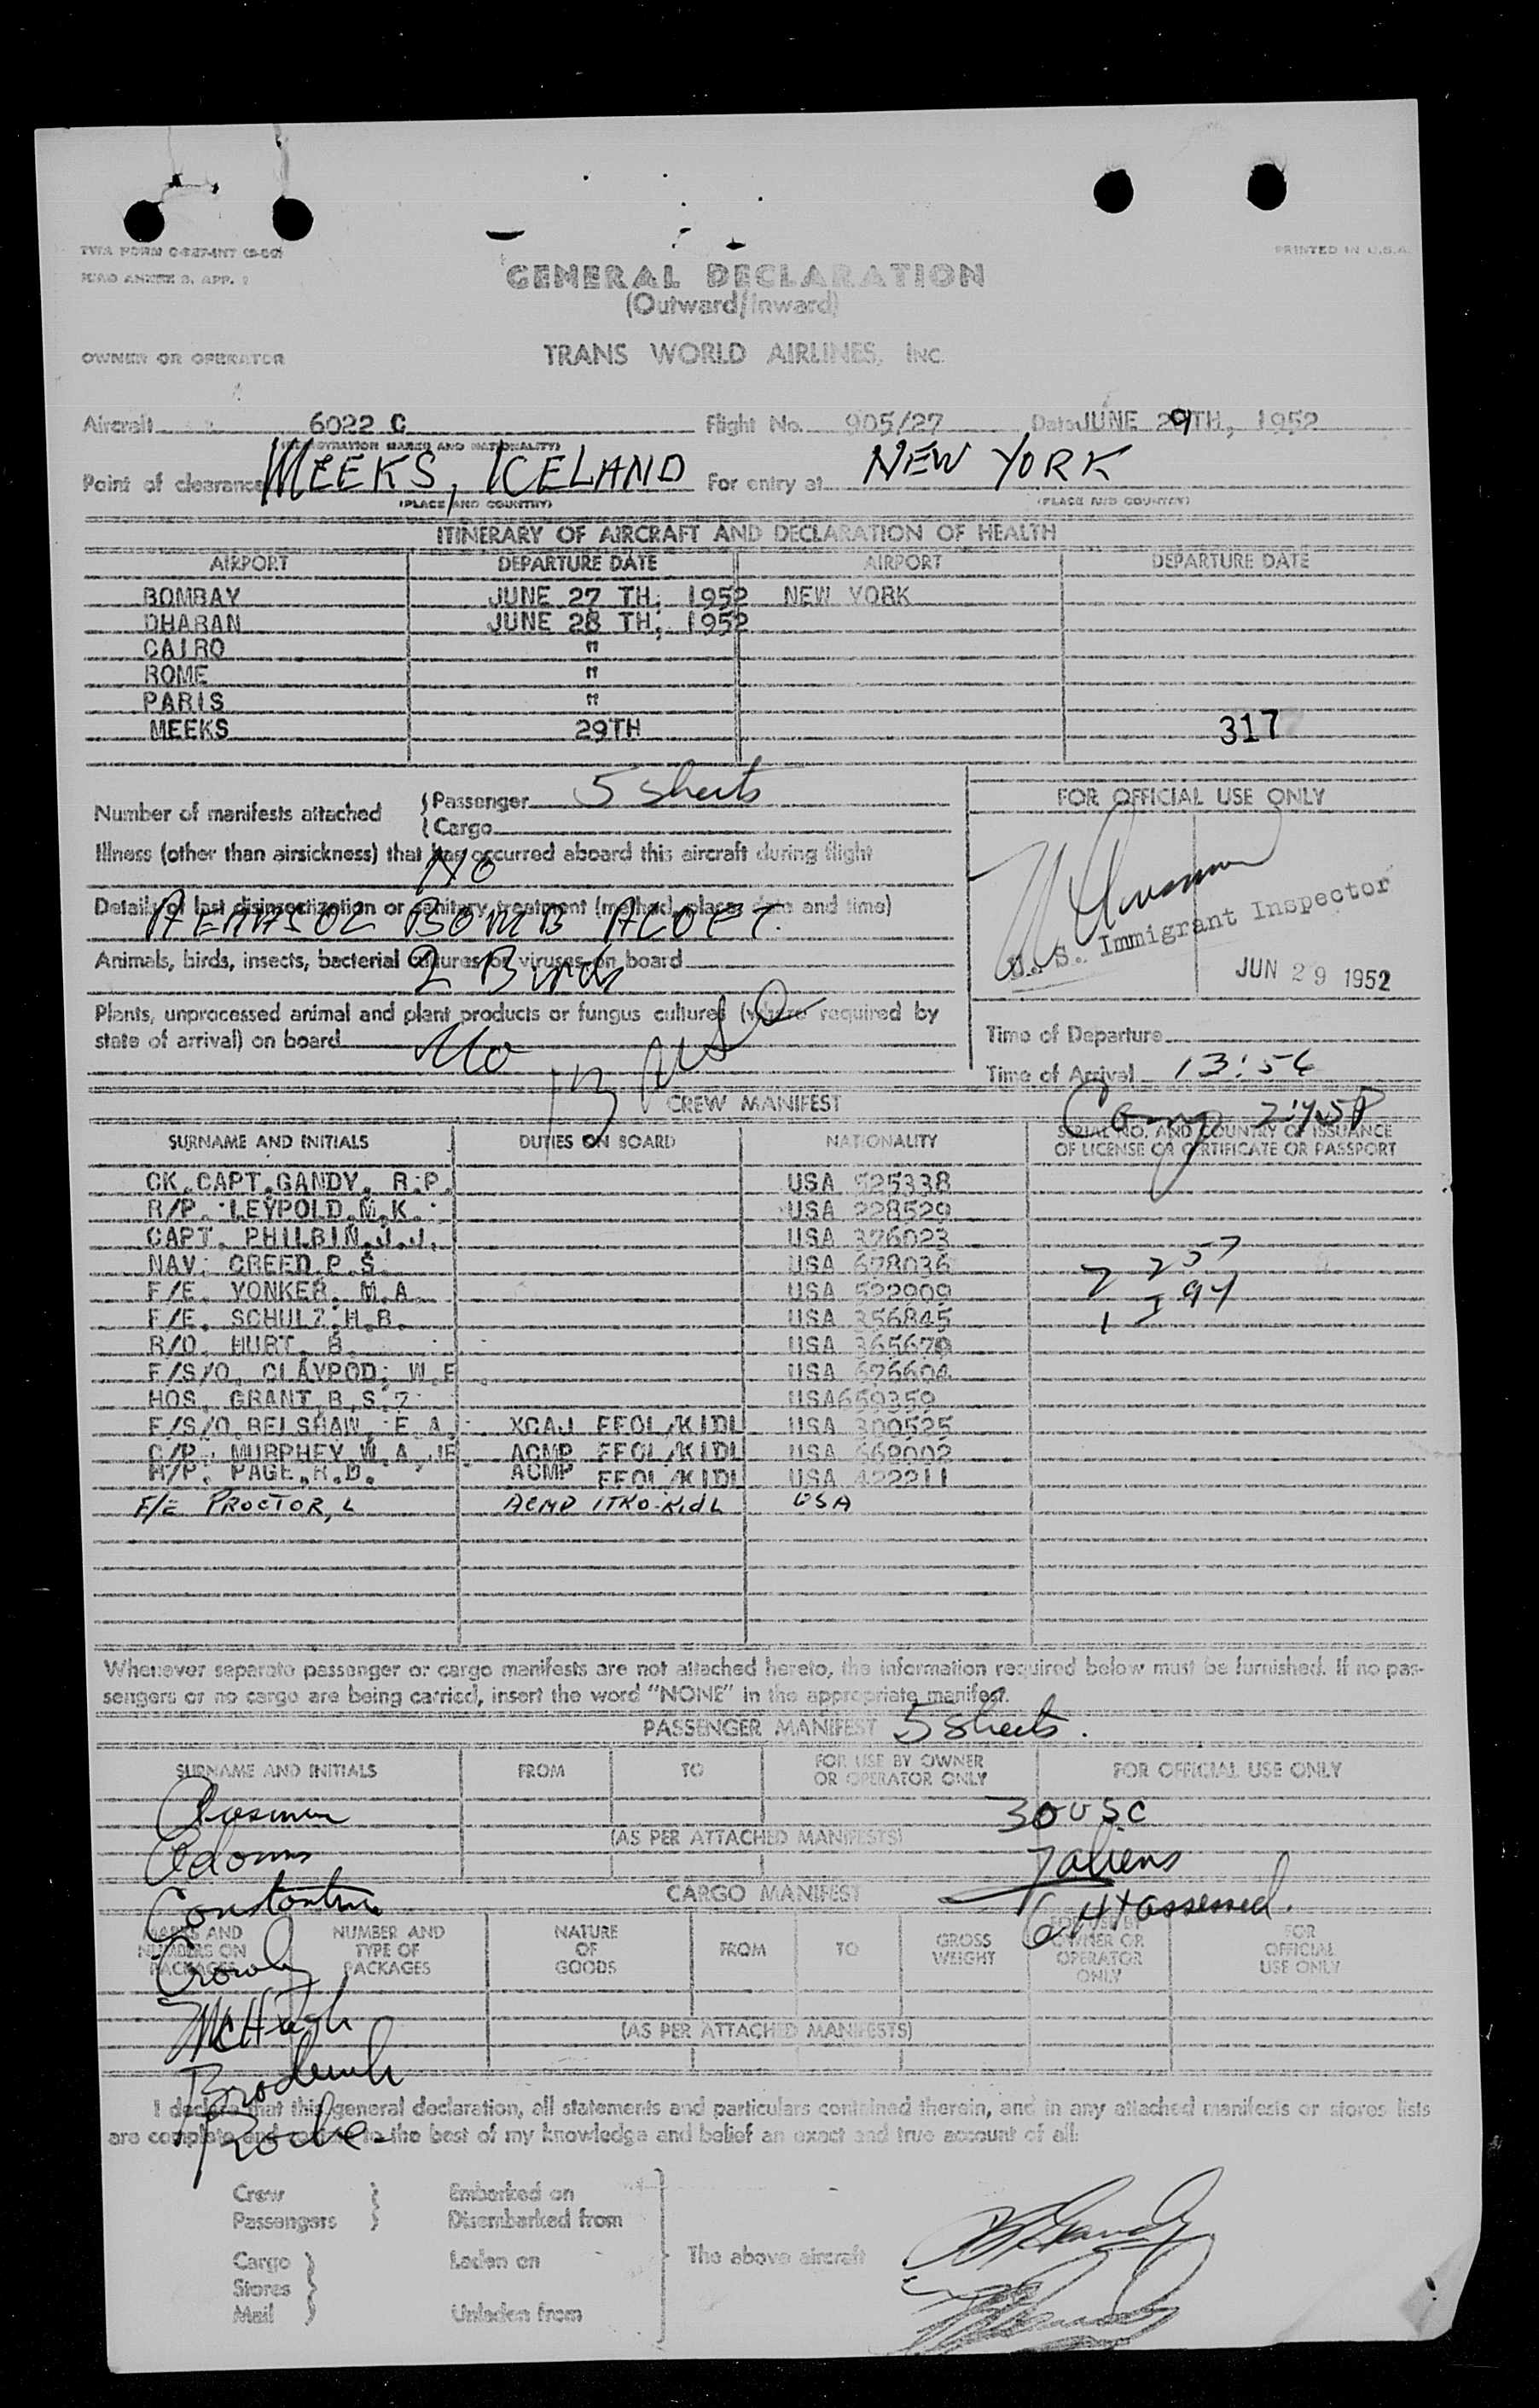 TWA FORM
PRINTED IN U.S.A.
ICAO ANNEX 9, APP. 1
GENERAL DECLARATION
(Outward/Inward)
OWNER OR OPERATOR TRANS WORLD AIRLINES, INC.
Aircraft 6022 C Flight No. 905/27 Date JUNE 29TH, 1952
(REGISTRATION MARKS AND NATIONALITY)
Point of clearance MEEKS, ICELAND For entry at NEW YORK
(PLACE AND COUNTRY) (PLACE AND COUNTRY)
ITINERARY OF AIRCRAFT AND DECLARATION OF HEALTH
AIRPORT DEPARTURE DATE AIRPORT DEPARTURE DATE
BOMBAY JUNE 27 TH, 1952 NEW YORK
DHARAN JUNE 28 TH, 1952
CAIRO "
ROME "
PARIS "
MEEKS 29TH
317
Number of manifests attached
Passenger 5 sheets
Cargo
FOR OFFICIAL USE ONLY
Illness (other than airsickness) that has occurred aboard this aircraft during flight
NO
Details of last disinsectization or sanitary treatment (method, place, date and time)
BOMB ALOFT.
U. S. Immigrant Inspector
JUN 29 1952
Animals, birds, insects, bacterial cultures or viruses on board
2 Birds
Plants, unprocessed animal and plant products or fungus cultures (where required by
state of arrival) on board No
Time of Departure
Time of Arrival 13:56
CREW MANIFEST
Comp 2:45P
SURNAME AND INITIALS DUTIES ON BOARD NATIONALITY SERIAL NO. AND COUNTRY OF ISSUANCE
OF LICENSE OR CERTIFICATE OR PASSPORT
CK.CAPT.GANDY, R.P. USA 525338
R/P. LEYPOLD.M.K. USA 228529
CAPT. PHILBIN.J.J. USA 376023
NAV. CREED.P.S. USA 678036
F/E. YONKER. M.A. USA 522909
F/E. SCHULZ.H.R. USA 356845
R/O. HURT. B. USA 365679
F/S/O. CLAYPOD. W.E. USA 676604
HOS. GRANT.B.S. USA659359
F/S/O.BELSHAW. E.A. XCAJ EFOL/KIDL USA 300525
C/P. MURPHEY.W.A.JR. ACMP EFOL/KIDL USA 668002
PAGE.R.D. ACMP EFOL/KIDL USA 422211
F/E PROCTOR, L ACMP ITKO-KIDL USA
Whenever separate passenger or cargo manifests are not attached hereto, the information required below must be furnished. If no pas-
sengers or no cargo are being carried, insert the word "NONE" in the appropriate manifest.
PASSENGER MANIFEST 5 sheets.
SURNAME AND INITIALS FROM TO FOR USE BY OWNER
OR OPERATOR ONLY FOR OFFICIAL USE ONLY
30 USC
(AS PER ATTACHED MANIFESTS)
Adams
7 aliens
Constantine
CARGO MANIFEST
6 HT assessed.
MARKS AND
NUMBERS ON
PACKAGES
NUMBER AND
TYPE OF
PACKAGES
NATURE
OF
GOODS
FROM TO
GROSS
WEIGHT
FOR USE BY
OWNER OR
OPERATOR
ONLY
FOR
OFFICIAL
USE ONLY
McHugh
(AS PER ATTACHED MANIFESTS)
Roche
I declare that this general declaration, all statements and particulars contained therein, and in any attached manifests or stores lists
are complete and to the best of my knowledge and belief an exact and true account of all:
Crew Embarked on
Passengers Disembarked from
Cargo Laden on The above aircraft
Stores
Mail Unladen from